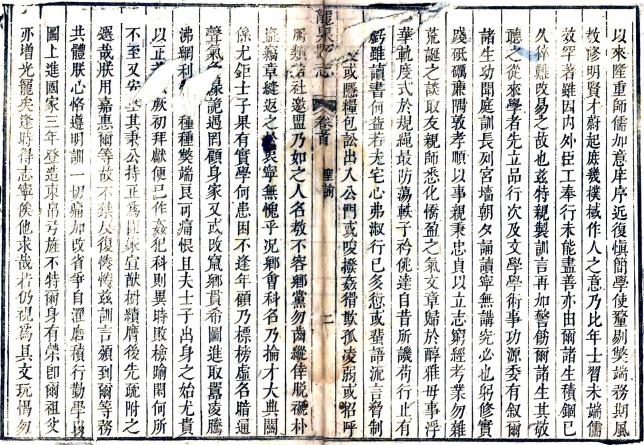 以來隆重師儒加意庠序近復慎簡學使釐剔獘端務期風
教修明賢才蔚起庶幾棫樸作人之意乃比年士習未端儒
效罕著雖因內外臣工奉行未能盡善亦由爾諸生積錮已
久倅難改易之故也兹特親製訓言再加警飭爾諸生其敬
聽之從來學者先立品行次及文學學術事功源委有叙爾
諸生幼聞庭訓長列宮墻朝夕誦讀寧無講究必也躬修實
踐砥礪廉隅敦孝順以事親秉忠貞以立志窮經考業勿雜
荒誕之談取友親師悉化憍盈之氣文章歸於醇雅毋事浮
華軌度式於規繩最防蕩軼子衿佻達自昔所譏苟行止有
虧雖讀書何益若夫宅心弗淑行已多愆或蜚語流言脅制
或隱糧包訟出入公門或唆撥姦猾欺孤凌弱或招呼
龍泉縣志 卷首 聖諭 二
朋類結社邀盟乃如之人名教不容鄉黨勿齒縱倖脫褫朴
濫竊章縫返之於衷寧無愧乎况鄉會科名乃掄才大典關
係尤鉅士子果有實學何患困不逢年顧乃標榜虛名暗通
聲氣夤緣詭遇罔顧身家又或改竄鄉貫希圖進取囂凌騰
沸網利種種獘端艮可痛恨且夫士子出身之始尤貴
以正厥初拜獻便已作姦犯科則異時敗檢踰閑何所
不至又安其秉公持正爲國家宣猷樹績膺後先疏附之
選哉朕用嘉惠爾等故不禁反復惓惓兹訓言頒到爾等務
共體朕心恪遵明訓一切痛加改省爭自濯磨積行勤學以
圖上進國家三年登造束帛弓旌不特爾身有榮即爾祖父
亦增光寵矣逢時得志寧俟他求哉若仍視爲具文玩愒勿